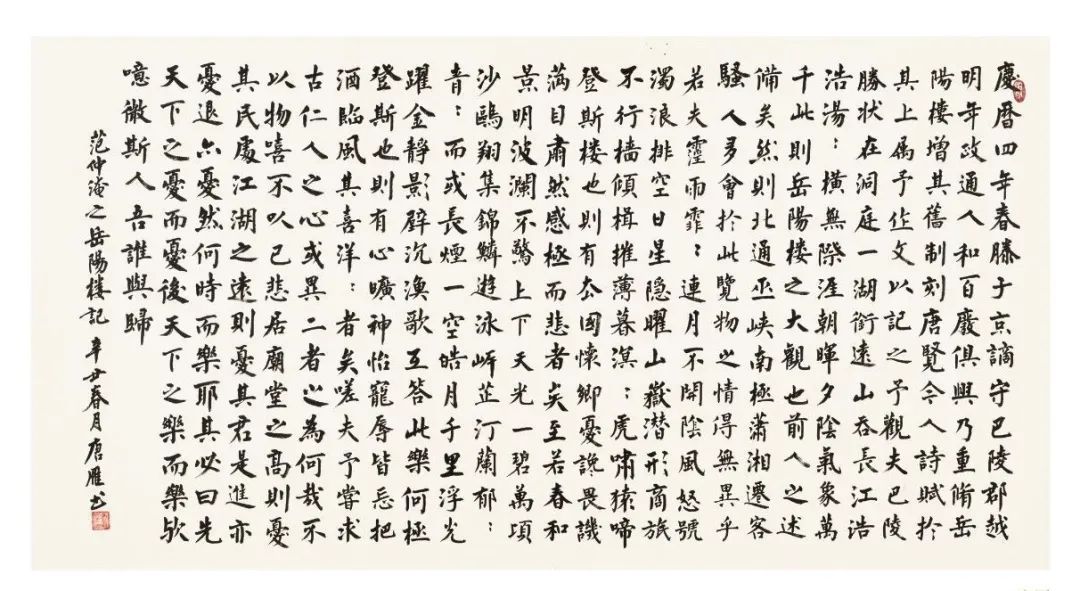 慶曆四年春滕子京謫守巴陵郡越
明年政通人和百廢俱興乃重脩岳
陽樓增其舊制刻唐賢今人詩賦於
其上属予作文以記之予觀夫巴陵
勝狀在洞庭一湖銜遠山吞長江浩
浩湯：橫無際涯朝暉夕陰氣象萬
千此則岳陽楼之大觀也前人之述
備矣然則北通巫峽南極瀟湘遷客
騷人多會於此覽物之情得無異乎
若夫霪雨霏：連月不開陰風怒號
濁浪排空日星隐曜山嶽潜形商旅
不行檣傾楫摧薄暮溟：虎嘯猿啼
登斯楼也則有去國懷鄉憂讒畏譏
满目肅然感極而悲者矣至若春和
景明波瀾不驚上下天光一碧萬頃
沙鷗翔集錦鱗遊泳岸芷汀蘭郁：
青：而或長煙一空皓月千里浮光
躍金靜影璧沉漁歌互答此樂何極
登斯也則有心曠神怡寵辱皆忘把
酒臨風其喜洋：者矣嗟夫予嘗求
古仁人之心或異二者之為何哉不
以物喜不以己悲居廟堂之高則憂
其民處江湖之遠則憂其君是進亦
憂退亦憂然何時而樂耶其必曰先
天下之憂而憂後天下之樂而樂歟
噫微斯人吾誰與歸
范仲淹之岳陽樓記 辛丑春月唐雁书